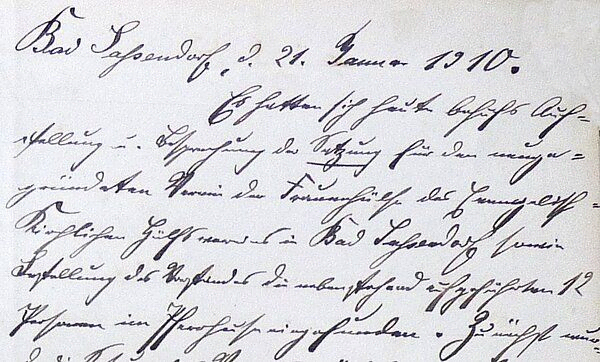 Bad Sassendorf, d. 21. Januar 1910.
Es hatten sich heute behufs Auf=
stellung u. Besprechung der Satzung für den neuge=
gründeten Verein der Frauenhülfe des Evangelisch=
Kirchlichen Hülfsvereins in Bad Sassendorf sowie
Bestellung des Vorstandes die nebenstehend aufgeführten 12
Personen im Pfarrhause eingefunden. Zunächst wur=